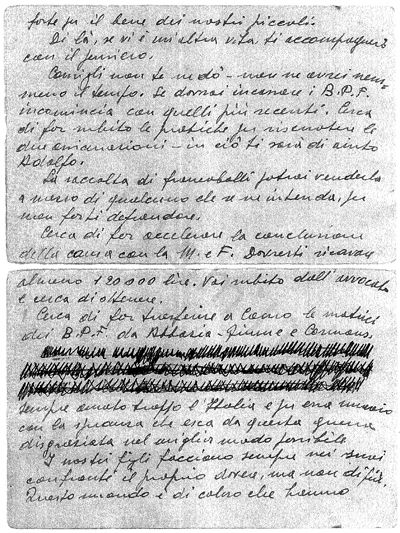 forte per il bene dei nostri piccoli.
Di là, se vi è un'altra vita, ti accompagnerò
con il pensiero.
Consigli non te ne dò - non ne avrei nem-
meno il tempo. Se dovrai incassare i B.P.F.
incomincia con quelli più recenti. Cerca
di far subito le pratiche per riscuotere le
due assicurazioni - in ciò ti sarà di aiuto
Adolfo.
La raccolta di francobolli potrai venderla
a mezzo di qualcuno che se ne intenda, per
non farti defraudare.
Cerca di far accelerare la conclusione
della causa con la M. e F. Dovresti ricavare
almeno 120000 lire. Vai subito dall'avvocato
e cerca di ottenere.
Cerca di far trasferire a Como le matrici
dei B.P.F. da Abbazia - Fiume e Cormons.
sempre amato troppo l'Italia e per essa muoio
con la speranza che esca da questa guerra
disgraziata nel miglior modo possibile
I nostri figli facciano sempre nei suoi
confronti il proprio dovere, ma non di più.
Questo mondo è di coloro che hanno